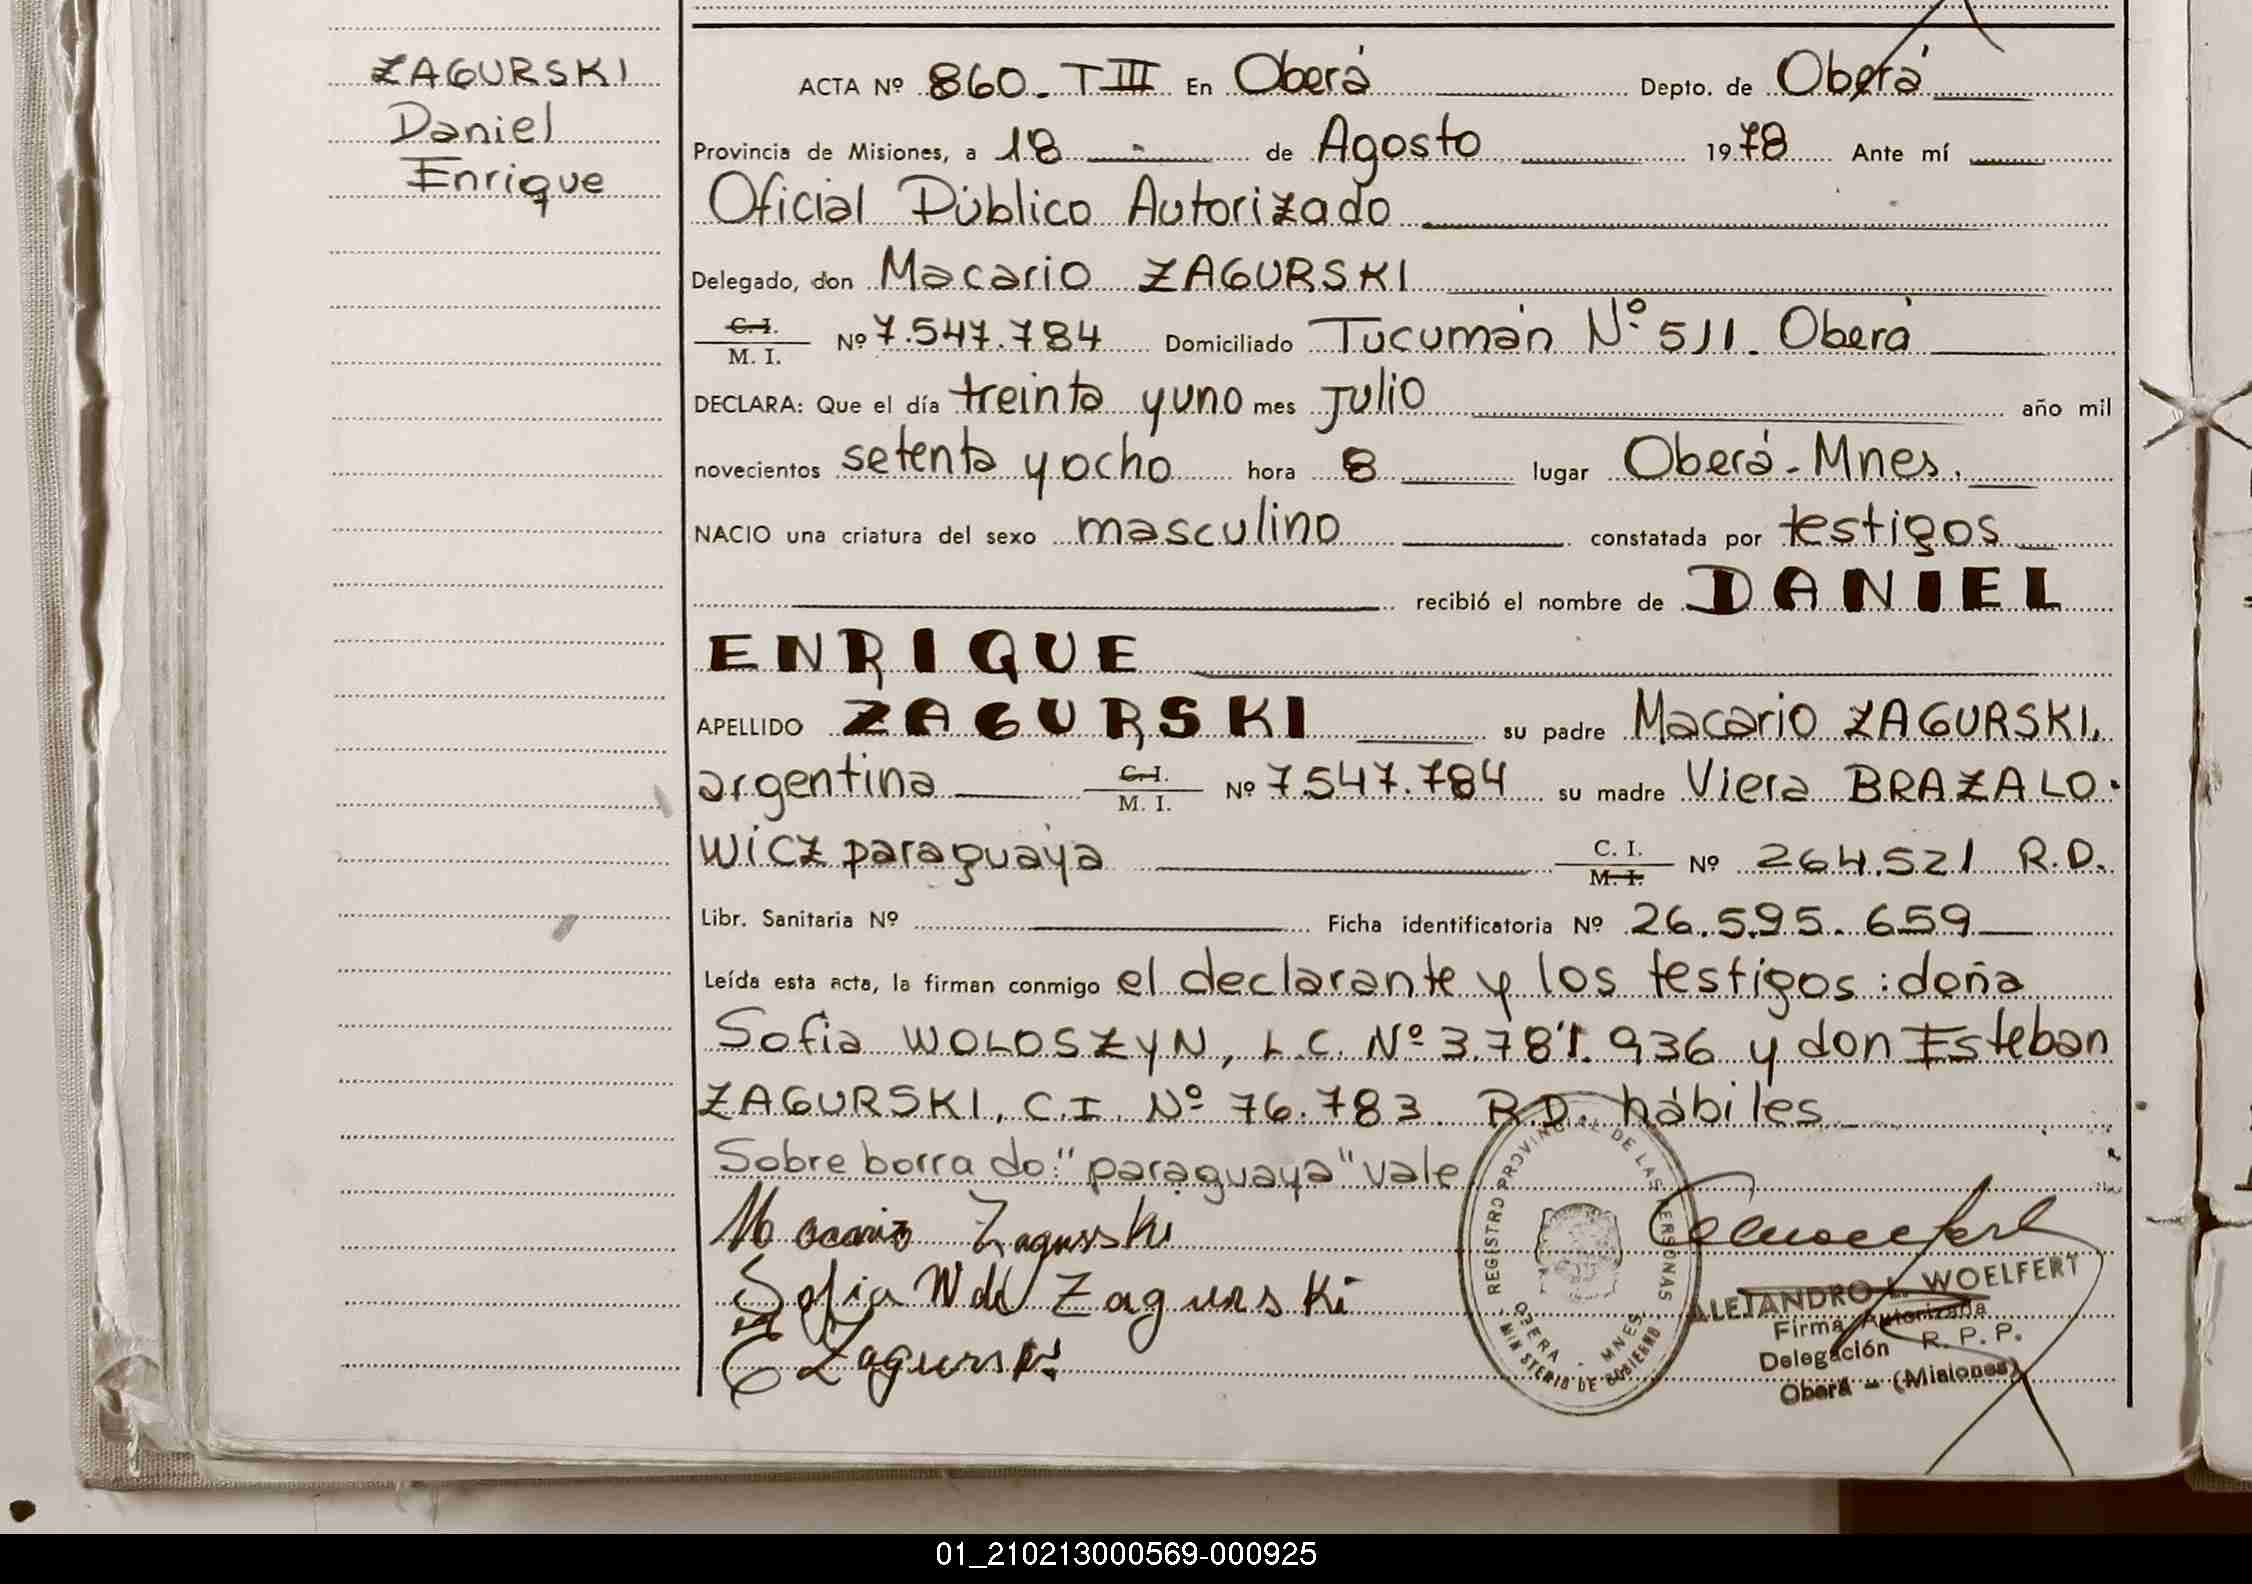 ZAGURSKI
Daniel
Enrique
ACTA Nº 860. TIII En Oberá Depto. de Oberá
Provincia de Misiones, a 18 de Agosto 1978 Ante mí
Oficial Público Autorizado
Delegado, don Macario ZAGURSKI
C. I. M. I. Nº 7.547.784 Domiciliado Tucumán Nº 511. Oberá
DECLARA: Que el día treinta y uno mes julio año mil
novecientos setenta y ocho hora 8 lugar Oberá - Mnes.
NACIO una criatura del sexo masculino constatada por testigos
recibió el nombre de DANIEL
ENRIQUE
APELLIDO ZAGURSKI su padre Macario ZAGURSKI,
argentina C. I. M. I. Nº 7.547.784 su madre Viera BRAZALO-
wicz paraguaya C. I. M. I. Nº 264.521 R.D.
Libr. Sanitaria Nº Ficha identificatoria Nº 26.595.659
Leída esta acta, la firman conmigo el declarante y los testigos: doña
Sofia WOLOSZYN, L.C. Nº 3.781.936 y don Esteban
ZAGURSKI, C.I. Nº 76.783 R.D. hábiles
Sobre borrado: "paraguaya" vale
Macario Zagurski
Sofia W de Zagurski
E Zagurski
REGISTRO PROVINCIAL DE LAS PERSONAS
OBERA - MNES.
MINISTERIO DE GOBIERNO
ALEJANDRO L. WOELFERT
Firma Autorizada
Delegación R. P. P.
Oberá - (Misiones)
01_210213000569-000925